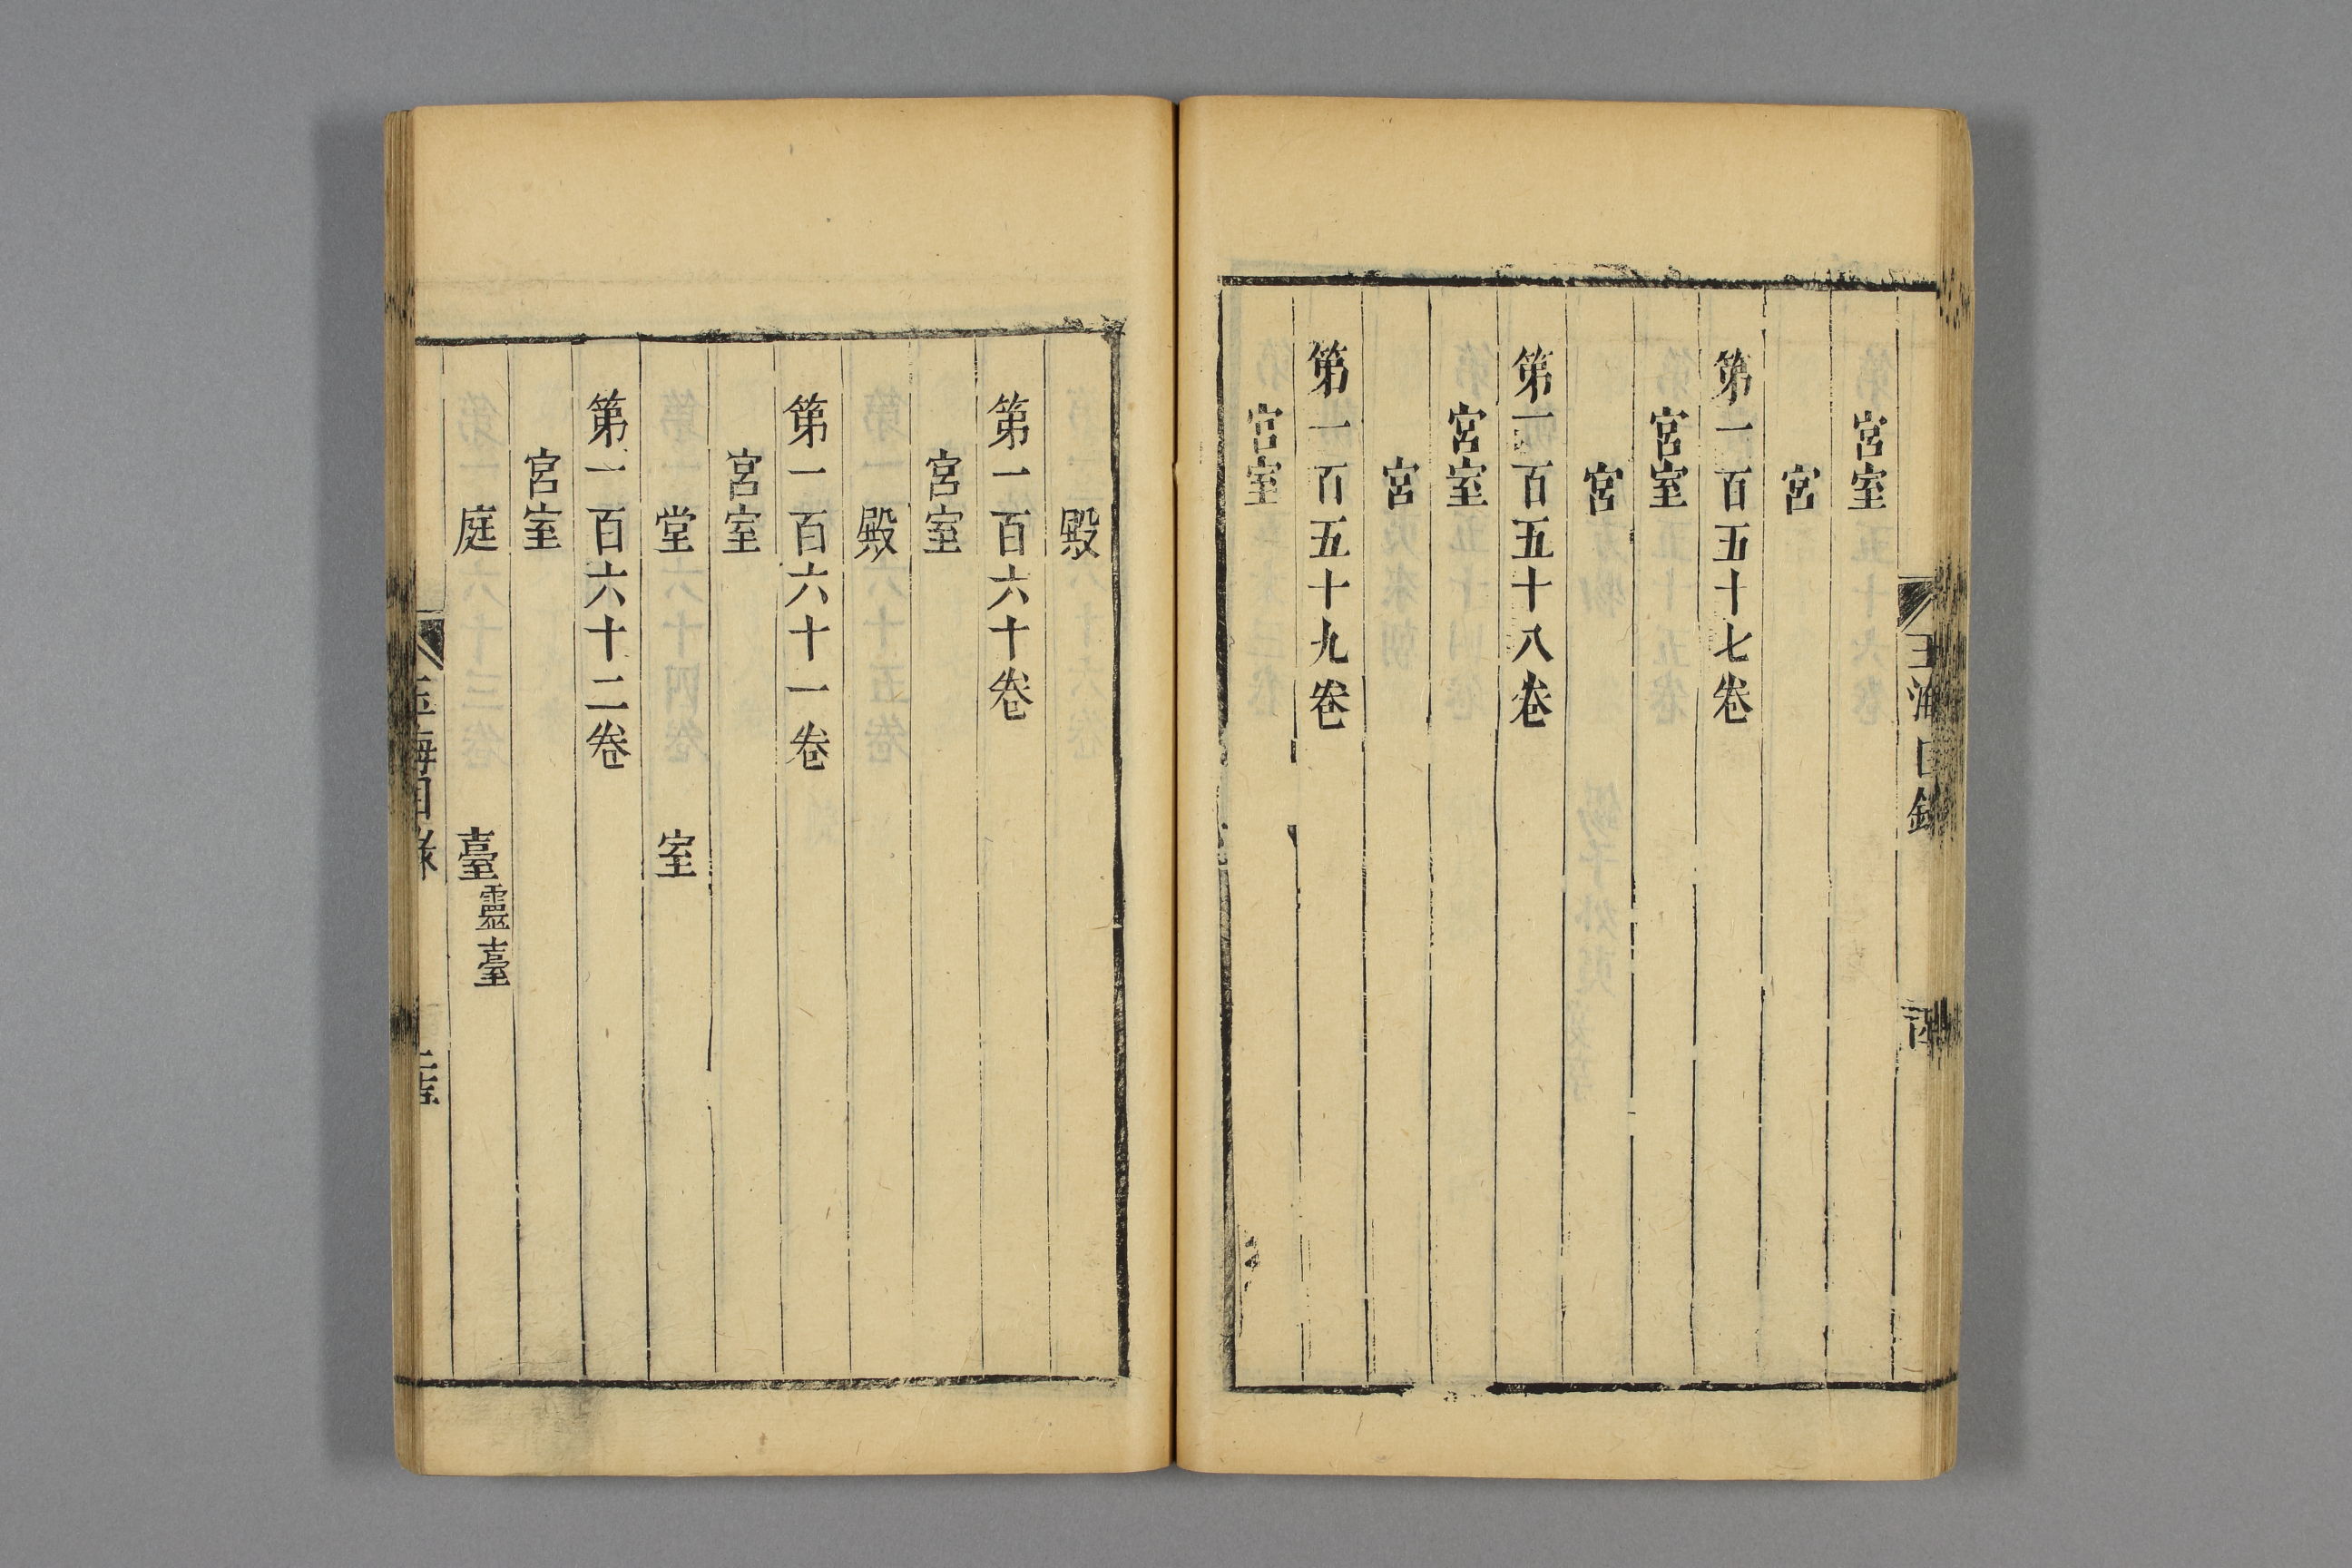 宮室
宮
第一百五十七卷
宮室
宮
第一百五十八卷
宮室
宮
第一百五十九卷
宮室
殿
第一百六十卷
宮室
殿
第一百六十一卷
宮室
堂 室
第一百六十二卷
宮室
庭 臺 靈臺
玉海目錄